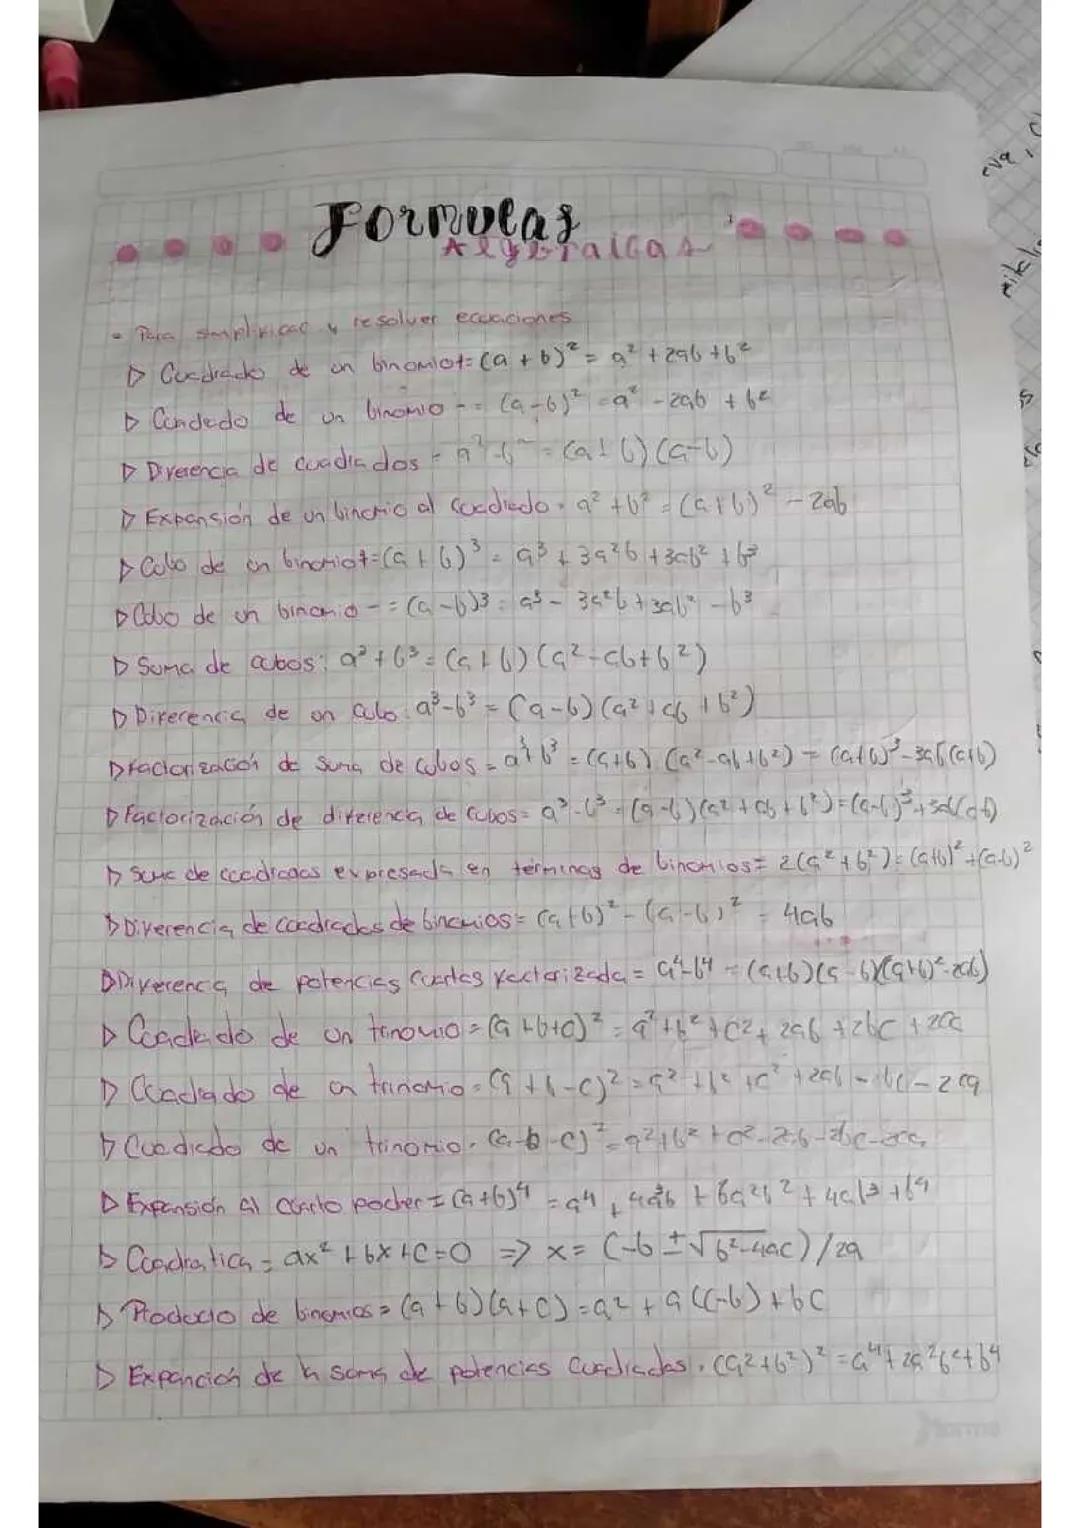 Formulas
Algebraicas
- Para simplificar y resolver ecuaciones
▷ Cuadrado de un binomio+= (a + b)² = a² + 2ab + b²
▷ Cuadrado de un binomio - = (a-b)² = a² - 2ab + b²
▷ Diferencia de cuadrados = a² - b² = (a + b)(a-b)
▷ Expansión de un binomio al cuadrado = a² + b² = (a+b)² - 2ab
▷ Cubo de un binomio+=(a + b)³ = a³ + 3a²b + 3ab² + b³
▷ Cubo de un binomio - = (a-b)³ = a³ - 3a²b + 3ab² - b³
▷ Suma de cubos: a³ + b³ = (a+b)(a²-ab+b²)
▷ Diferencia de un cubo: a³-b³ = (a-b)(a²+ab+b²)
▷ Factorización de suma de cubos = a³+b³ = (a+b)(a²-ab+b²) = (a+b)³-3ab(a+b)
▷ Factorización de diferencia de cubos= a³-b³ = (a-b)(a²+ab+b²)=(a-b)³+3ab(a-b)
▷ Suma de cuadrados expresada en términos de binomios= 2(a²+b²)=(a+b)²+(a-b)²
▷ Diferencia de cuadrados de binomios= (a+b)²-(a-b)² = 4ab
▷ Diferencia de potencias cuartas factorizada = a⁴-b⁴ = (a+b)(a-b)((a+b)²-2ab)
▷ Cuadrado de un trinomio = (a+b+c)² = a²+b²+c²+2ab+2bc+2ca
▷ Cuadrado de un trinomio = (a+b-c)² = a²+b²+c²+2ab-2bc-2ca
▷ Cuadrado de un trinomio = (a-b-c)² = a²+b²+c²-2ab-2bc-2ca
▷ Expansión al cuarto poder = (a+b)⁴ = a⁴ + 4a³b + 6a²b² + 4ab³ + b⁴
▷ Cuadratica = ax² + bx + c=0 => x= (-b ± √b²-4ac)/2a
▷ Producto de binomios = (a+b)(a+c)=a² + a(c-b)+bc
▷ Expanción de la suma de potencias cuadradas = (a²+b²)² = a⁴+2a²b²+b⁴